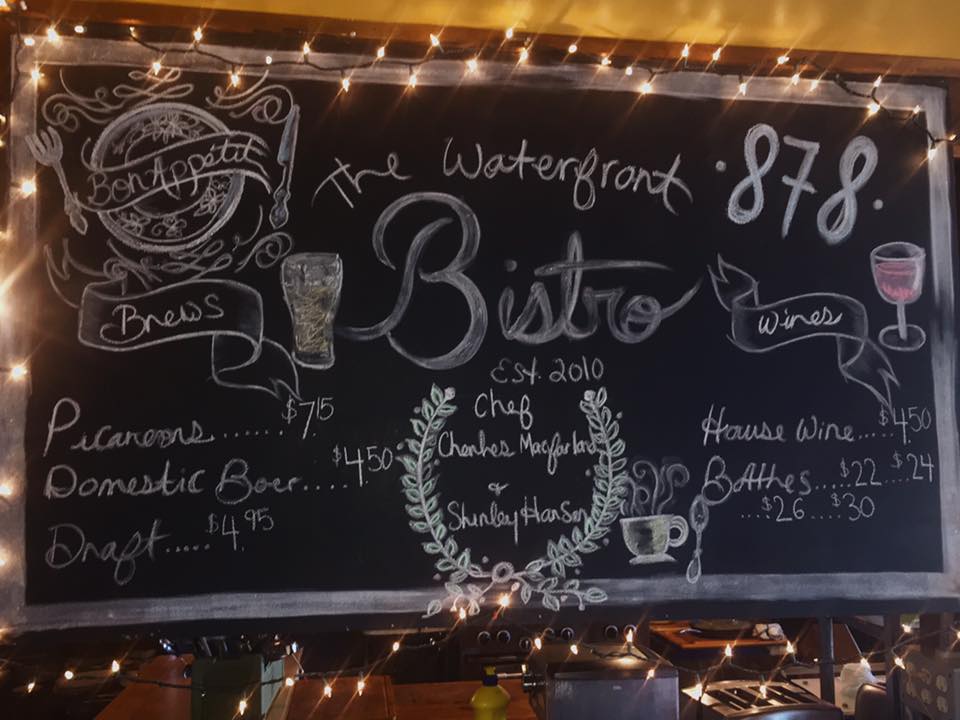 Bon Appétit
The Waterfront
·878·
Bistro
Brews
Wines
Est. 2010
Chef
Charles Macfarland
&
Shirley Hansen
Picaroons...... $7.15
Domestic Beer.... $4.50
Draft..... $4.95
House Wine..... $4.50
Bottles..... $22 ...$24
...$26....$30